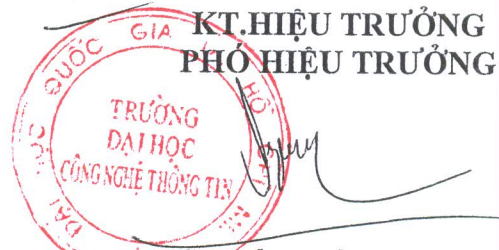 KT.HIỆU TRƯỞNG
PHÓ HIỆU TRƯỞNG
ĐẠI HỌC QUỐC GIA
HỒ CHÍ
TRƯỜNG
ĐẠI HỌC
CÔNG NGHỆ THÔNG TIN